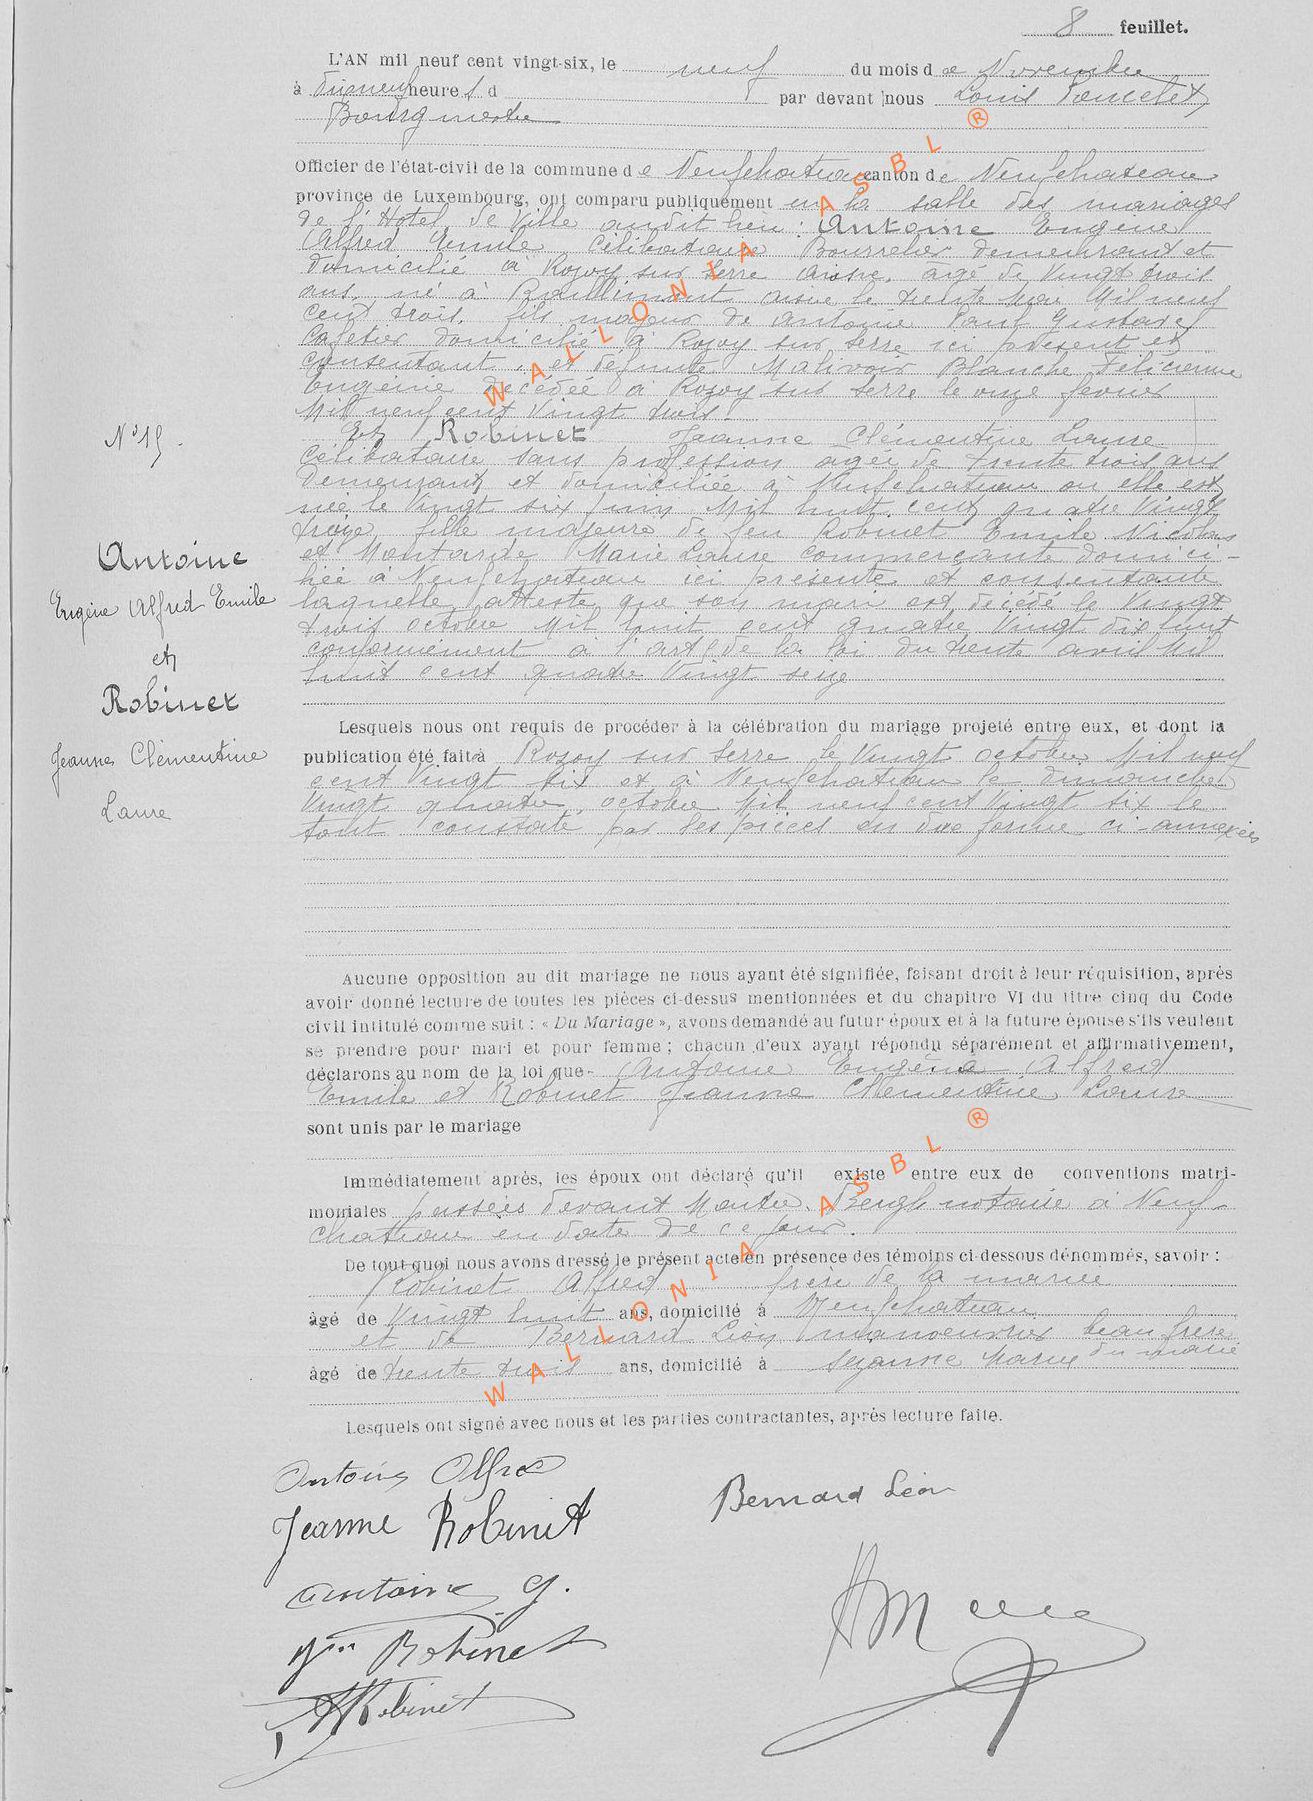 8 feuillet.
L'AN mil neuf cent vingt-six, le neuf du mois de Novembre
à dixneuf heures d par devant nous Louis Poncelet
Bourgmestre
Officier de l'état-civil de la commune de Neufchateau canton de Neufchateau
province de Luxembourg, ont comparu publiquement en la salle des mariages
de l'Hotel de Ville audit lieu : Antoine Eugène
Alfred Emile célibataire Bourrelier demeurant et
domicilié à Rozoy sur Serre Aisne, agé de Vingt trois
ans, né à Raillimont aisne le trente Mai Mil neuf
cent trois, fils majeur de Antoine Paul Gustave
Cafetier domicilié à Rozoy sur serre ici présent et
consentant, et défunte Malivoir Blanche Félicienne
Eugénie décédée à Rozoy sur Serre le onze fevrier
Mil neuf cent Vingt trois.
Et Robinet Jeanne Clémentine Laure
Célibataire sans profession agée de trente trois ans
Demeurant et domiciliée à Neufchateau ou elle est
née le Vingt six juin Mil huit cent quatre Vingt
treize, fille majeure de feu Robinet Emile Nicolas
et Montarde Marie Laure commerçante domici-
liée à Neufchateau ici présente et consentante
laquelle atteste que son mari est décédé le Vingt
trois octobre Mil huit cent quatre Vingt dix huit
conformement à l'art de la loi du trente avril Mil
huit cent quatre Vingt seize
N° 15.
Antoine
Eugène Alfred Emile
et
Robinet
Jeanne Clémentine
Laure
Lesquels nous ont requis de procéder à la célébration du mariage projeté entre eux, et dont la
publication été faite à Rozoy sur Serre le Vingt octobre Mil neuf
cent Vingt six et à Neufchateau le dimanche
Vingt quatre octobre Mil neuf cent Vingt six le
tout constaté par les pièces en due forme ci-annexées
Aucune opposition au dit mariage ne nous ayant été signifiée, faisant droit à leur réquisition, après
avoir donné lecture de toutes les pièces ci-dessus mentionnées et du chapitre VI du titre cinq du Code
civil intitulé comme suit : « Du Mariage », avons demandé au futur époux et à la future épouse s'ils veulent
se prendre pour mari et pour femme ; chacun d'eux ayant répondu séparément et affirmativement,
déclarons au nom de la loi que Antoine Eugène Alfred
Emile et Robinet Jeanne Clémentine Laure
sont unis par le mariage
Immédiatement après, les époux ont déclaré qu'il existe entre eux de conventions matri-
moniales passées devant Maitre Bergh notaire à Neuf-
chateau en date de ce jour.
De tout quoi nous avons dressé le présent acte en présence des témoins ci-dessous dénommés, savoir :
Robinet Alfred frère de la mariée
âgé de Vingt huit ans, domicilié à Neufchateau
et de Bernard Léon manoeuvrier beau frère
du marié
âgé de trente trois ans, domicilié à Sézanne Marne
Lesquels ont signé avec nous et les parties contractantes, après lecture faite.
Antoine Alfred
Jeanne Robinet
Bernard Léon
Antoine G.
Robinet
Robinet
WALLONIA ASBL ®
WALLONIA ASBL ®